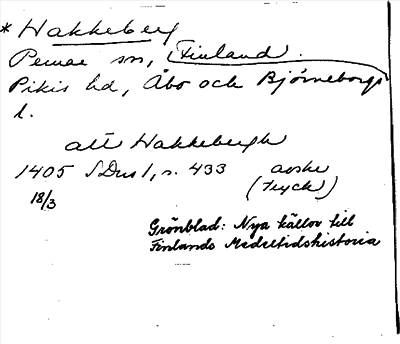 * Hakkeberg
Pemar sn, Finland.
Pikis hd, Åbo och Björneborgs
l.
att Hakkebergh
1405 SDns 1, s. 433 avskr
18/3 (tryck)
Grönblad: Nya källor till
Finlands Medeltidshistoria